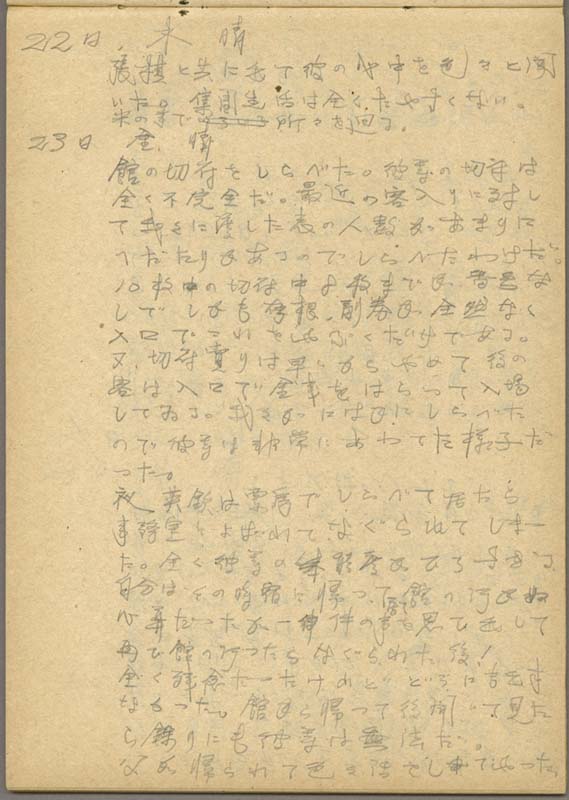 22日、木 晴
張模と共に出て彼の心中を色々と聞
いた。集團生活は全くたやすくない。
米のまで 所々を廻る。
23日 金、晴
館の切符をしらべた。彼等の切符は
全く不完全だ。最近の客入りにるまし
て我々に渡した表の人数があまりに
へだたりがあるのでしらべたわけだ。
10枚中の切符中8枚までが番号な
しで しかも存根、副券が全然なく
入口でこれをしやぶくだけである。
又、切符賣りは早いからやめて後の
客は入口で金をはらって入場
してゐる。我々がにはかにしらべた
ので彼等は非常にあわてた様子だ
った。
夜 英欽は票房でしらべて居たら
事務室によばれてなぐられてしまー
た。全く彼等の態度がひ
自分はその時宿に帰って館の何がぬ
心算だったが一件の事を思ひ出して
再び館へ行ったらなぐられた後!
全く残念だったけれど どうにも出来
なかった。館から帰って後聞いて見た
ら餘りにも彼等は無法だ。
父が帰られて色々話をしてやった。